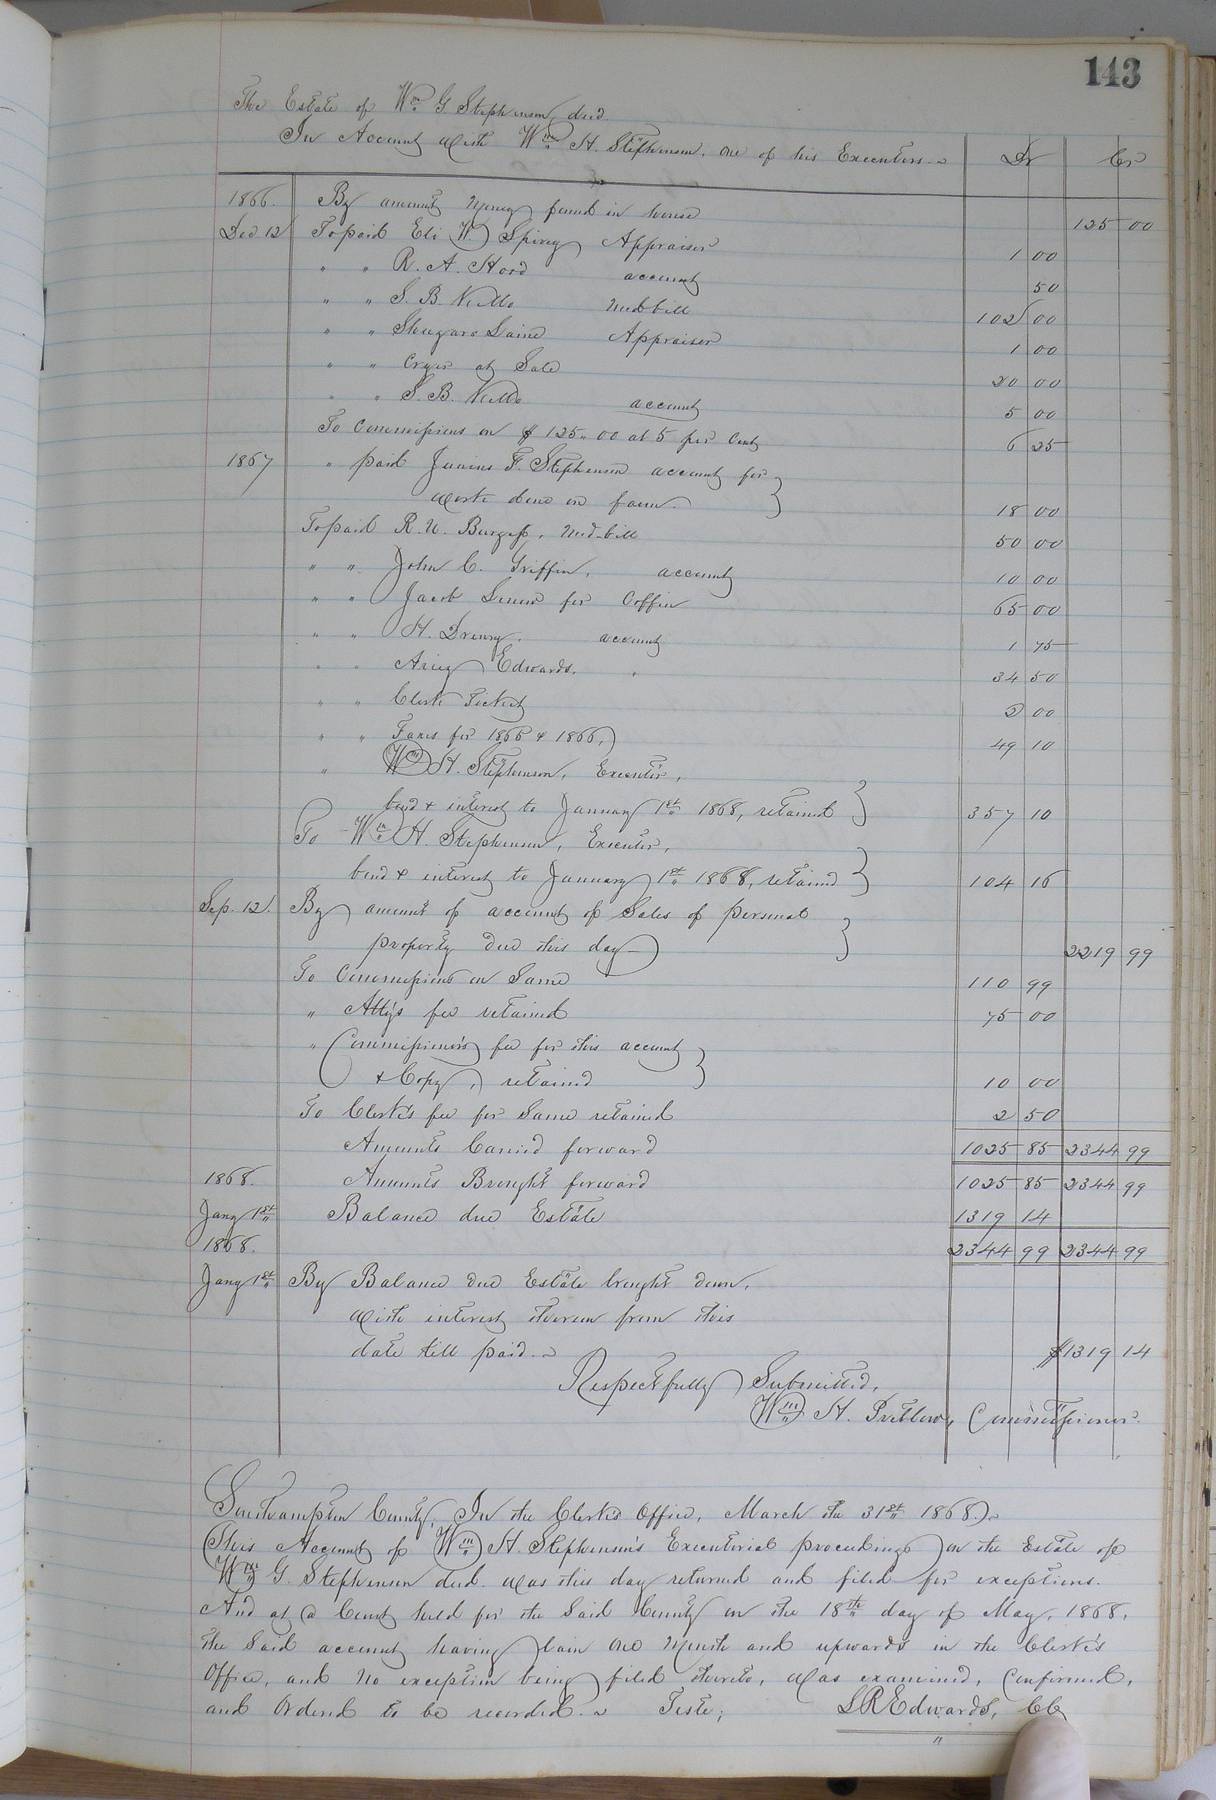 143
The Estate of Wm G. Stephenson, decd.
In Account with Wm H. Stephenson, one of his Executors. Dr Cr
1866. By amount money found in house 125 00
Dec 12 To paid Eli W. Spivey Appraiser 1 00
" " R. A. Hood account 50
" " S. B. Medbill 102 00
" " Laine Appraiser 1 00
" " Cryer at Sale 20 00
" " S. B. account 5 00
To Commissions on $125.00 at 5 per Cent 6 25
1867 " paid Junius F. Stephenson account for
work done on farm. 18 00
To paid R. U. Burgess, Med-bill 50 00
" " John C. Griffin, account 10 00
" " Jacob for Coffin 65 00
" " H. Drewry, account 1 75
" " Edwards, " 34 50
" " Clerk's Ticket 2 00
" " Taxes for 1865 & 1866, 49 10
" Wm H. Stephenson, Executor,
bond & interest to January 1st 1868, retained 357 10
To Wm H. Stephenson, Executor,
bond & interest to January 1st 1868, retained 104 16
Sep. 12. By amount of account of Sales of personal
property due this day 2219 99
To Commissions on Same 110 99
" Atty's fee retained 75 00
" Commissioner's fee for this account
& Copy, retained 10 00
To Clerk's fee for Same retained 2 50
Amounts Carried forward 1025 85 2344 99
1868. Amounts Brought forward 1025 85 2344 99
Jany 1st Balance due Estate 1319 14
1868. 2344 99 2344 99
Jany 1st By Balance due Estate brought down,
with interest thereon from this
date till paid. $1319 14
Respectfully Submitted,
Wm H. Pretlow, Commissioner.
Southampton County, In the Clerk's Office, March the 31st 1868.
This Account of Wm H. Stephenson's Executorial proceedings on the Estate of
Wm G. Stephenson decd. was this day returned and filed for exceptions.
And at a Court held for the Said County on the 18th day of May, 1868,
the Said account having lain one Month and upwards in the Clerk's
Office, and no exception being filed thereto, was examined, Confirmed,
and Ordered to be recorded. Teste;
L R Edwards, CC